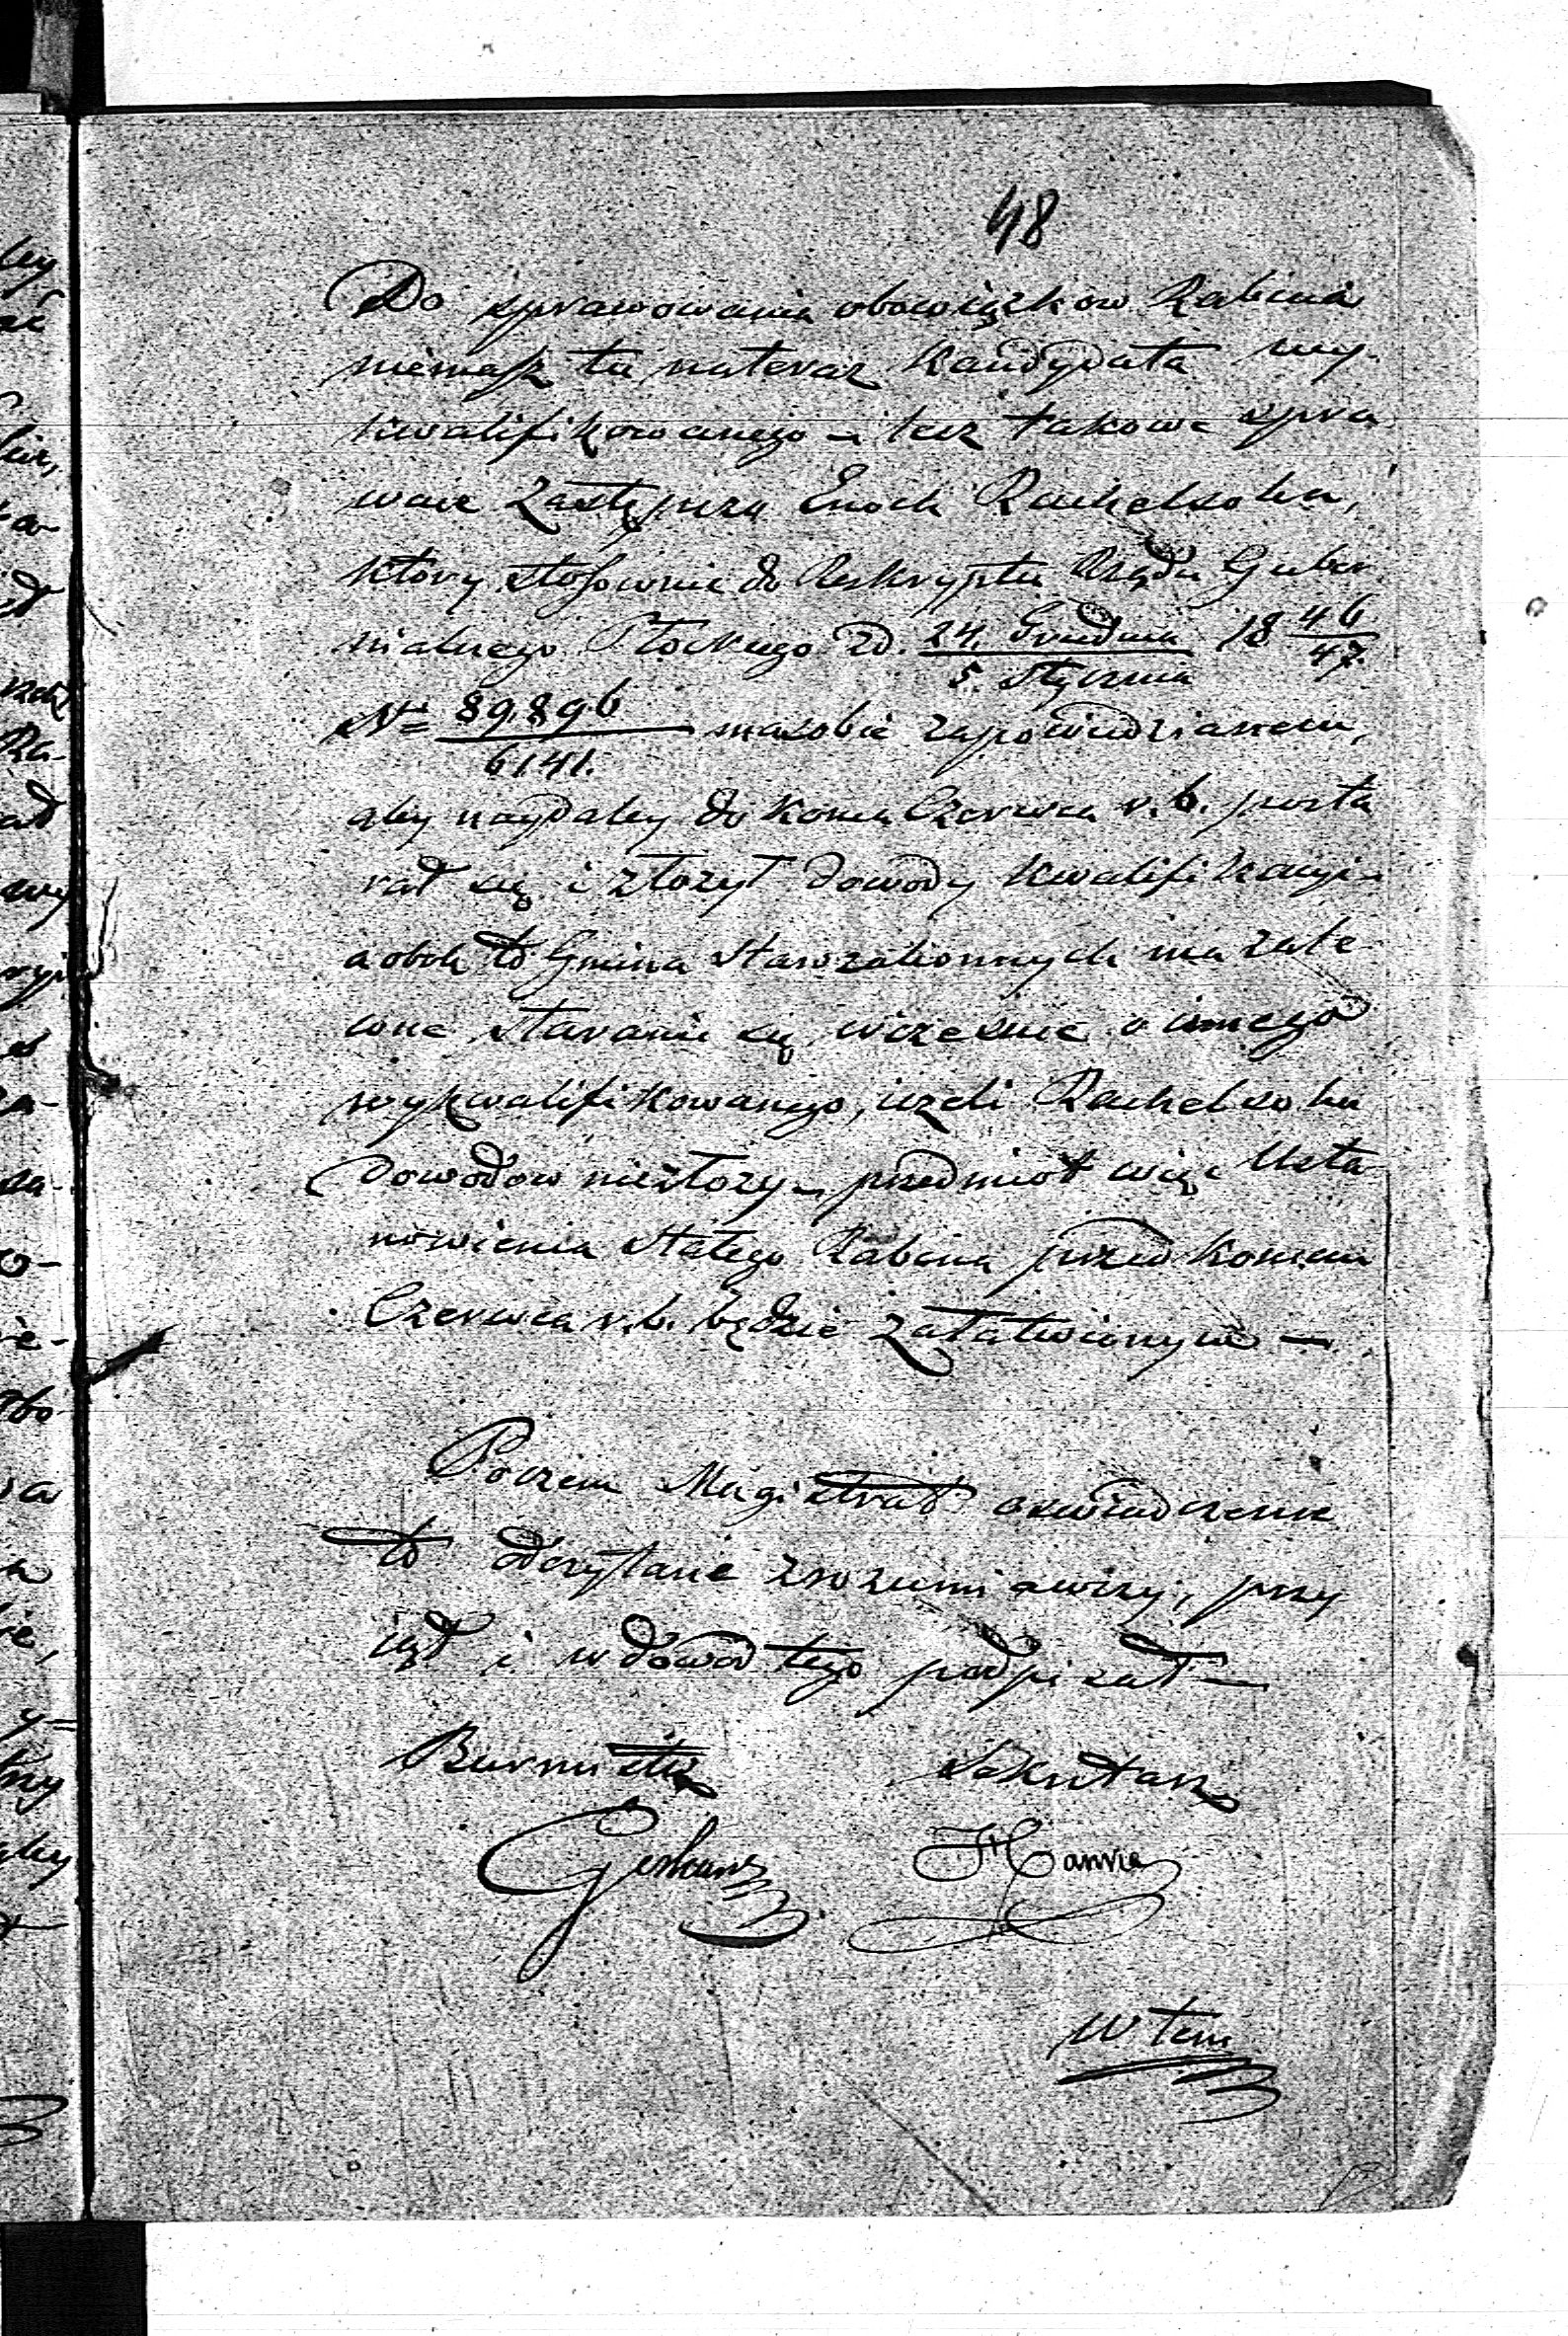 48
Do sprawowania obowiązkow Rabina
niemasz tu nateraz Kandydata wy-
kwalifikowanego – lecz takowe spra
wuie Zastępczo Enoch Rachelsohn,
który stosownie do Reskryptu Rządu Guber
nialnego Płockiego zd. 24. Grudnia / 5. Stycznia 1846/47.
N= 89,896 / 6141. ma sobie zapowiedzianem,
aby naydaley do Konca Czerwca r. b. posta
rał się i złożył dowody kwalifikacyi –
a obok to Gmina Starozakonnych ma zale
cone staranie się wczesnie o innego
wykwalifikowanego, ieżeli Rachelsohn
dowodow niezłoży – przedmiot więc Usta
nowienia stałego Rabina przed koncem
Czerwca r. b. będzie załatwionym –
Poczem Magistrat oswiadczenie
to odczytane zrozumiawszy, przy
iął i w dowod tego podpisał –
Burmistrz Sekretarz
w tem